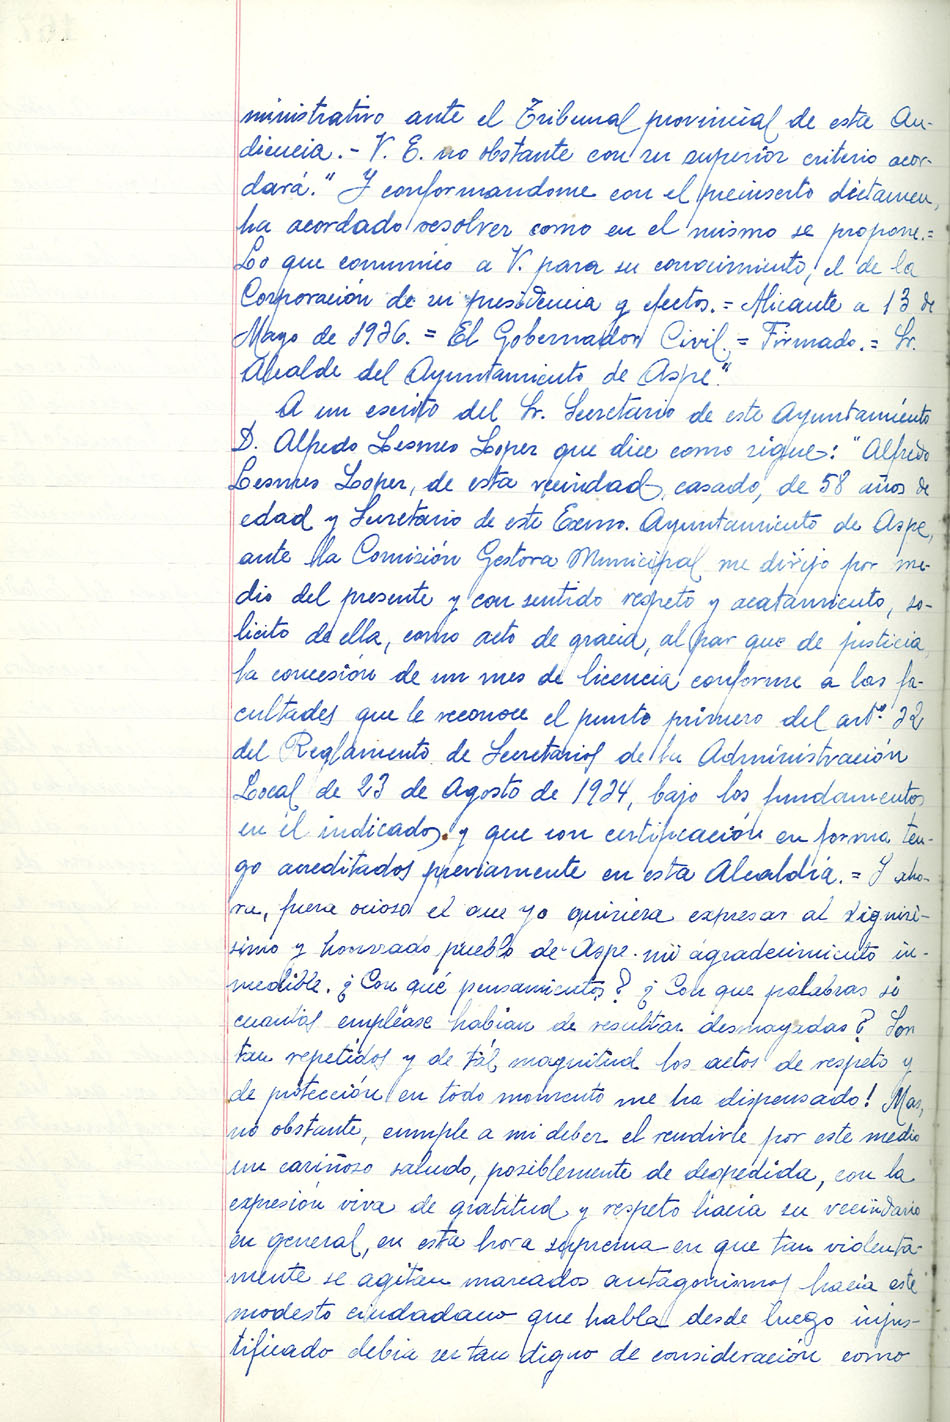 ministrativo ante el Tribunal provincial de esta Au-
diencia.- V. E. no obstante con su superior criterio acor-
dará." Y conformandome con el preinserto dictamen,
ha acordado resolver como en el mismo se propone.=
Lo que comunico a V. para su conocimiento, el de la
Corporación de su presidencia y efectos.= Alicante a 13 de
Mayo de 1936. = El Gobernador Civil.= Firmado.= Sr.
Alcalde del Ayuntamiento de Aspe."
A un escrito del Sr. Secretario de este Ayuntamiento
D. Alfredo Lesmes Lopez que dice como sigue: "Alfredo
Lesmes Lopez, de esta vecindad, casado, de 58 años de
edad y Secretario de este Excmo. Ayuntamiento de Aspe,
ante la Comisión Gestora Municipal me dirijo por me-
dio del presente y con sentido respeto y acatamiento, so-
licito de ella, como acto de gracia, al par que de justicia,
la concesión de un mes de licencia conforme a las fa-
cultades que le reconoce el punto primero del artº 32
del Reglamento de Secretarios de la Administración
Local de 23 de Agosto de 1924, bajo los fundamentos
en él indicados y que con certificación en forma ten-
go acreditados previamente en esta Alcaldía.= Y aho-
ra, fuera ocioso el que yo quisiera expresar al dignisi-
simo y honrado pueblo de Aspe mi agradecimiento in-
medible. ¿Con qué pensamientos? ¿Con que palabras si
cuantas emplease habían de resultar desmayadas? Son
tan repetidos y de tál magnitud los actos de respeto y
de protección en todo momento me ha dispensado! Mas,
no obstante, cumple a mi deber el rendirle por este medio
un cariñoso saludo, posiblemente de despedida, con la
expresión viva de gratitud y respeto hacia su vecindario
en general, en esta hora suprema en que tan violenta-
mente se agitan marcados antagonismos hacia este
modesto ciudadano que habla desde luego injus-
tificado debia ser tan digno de consideración como